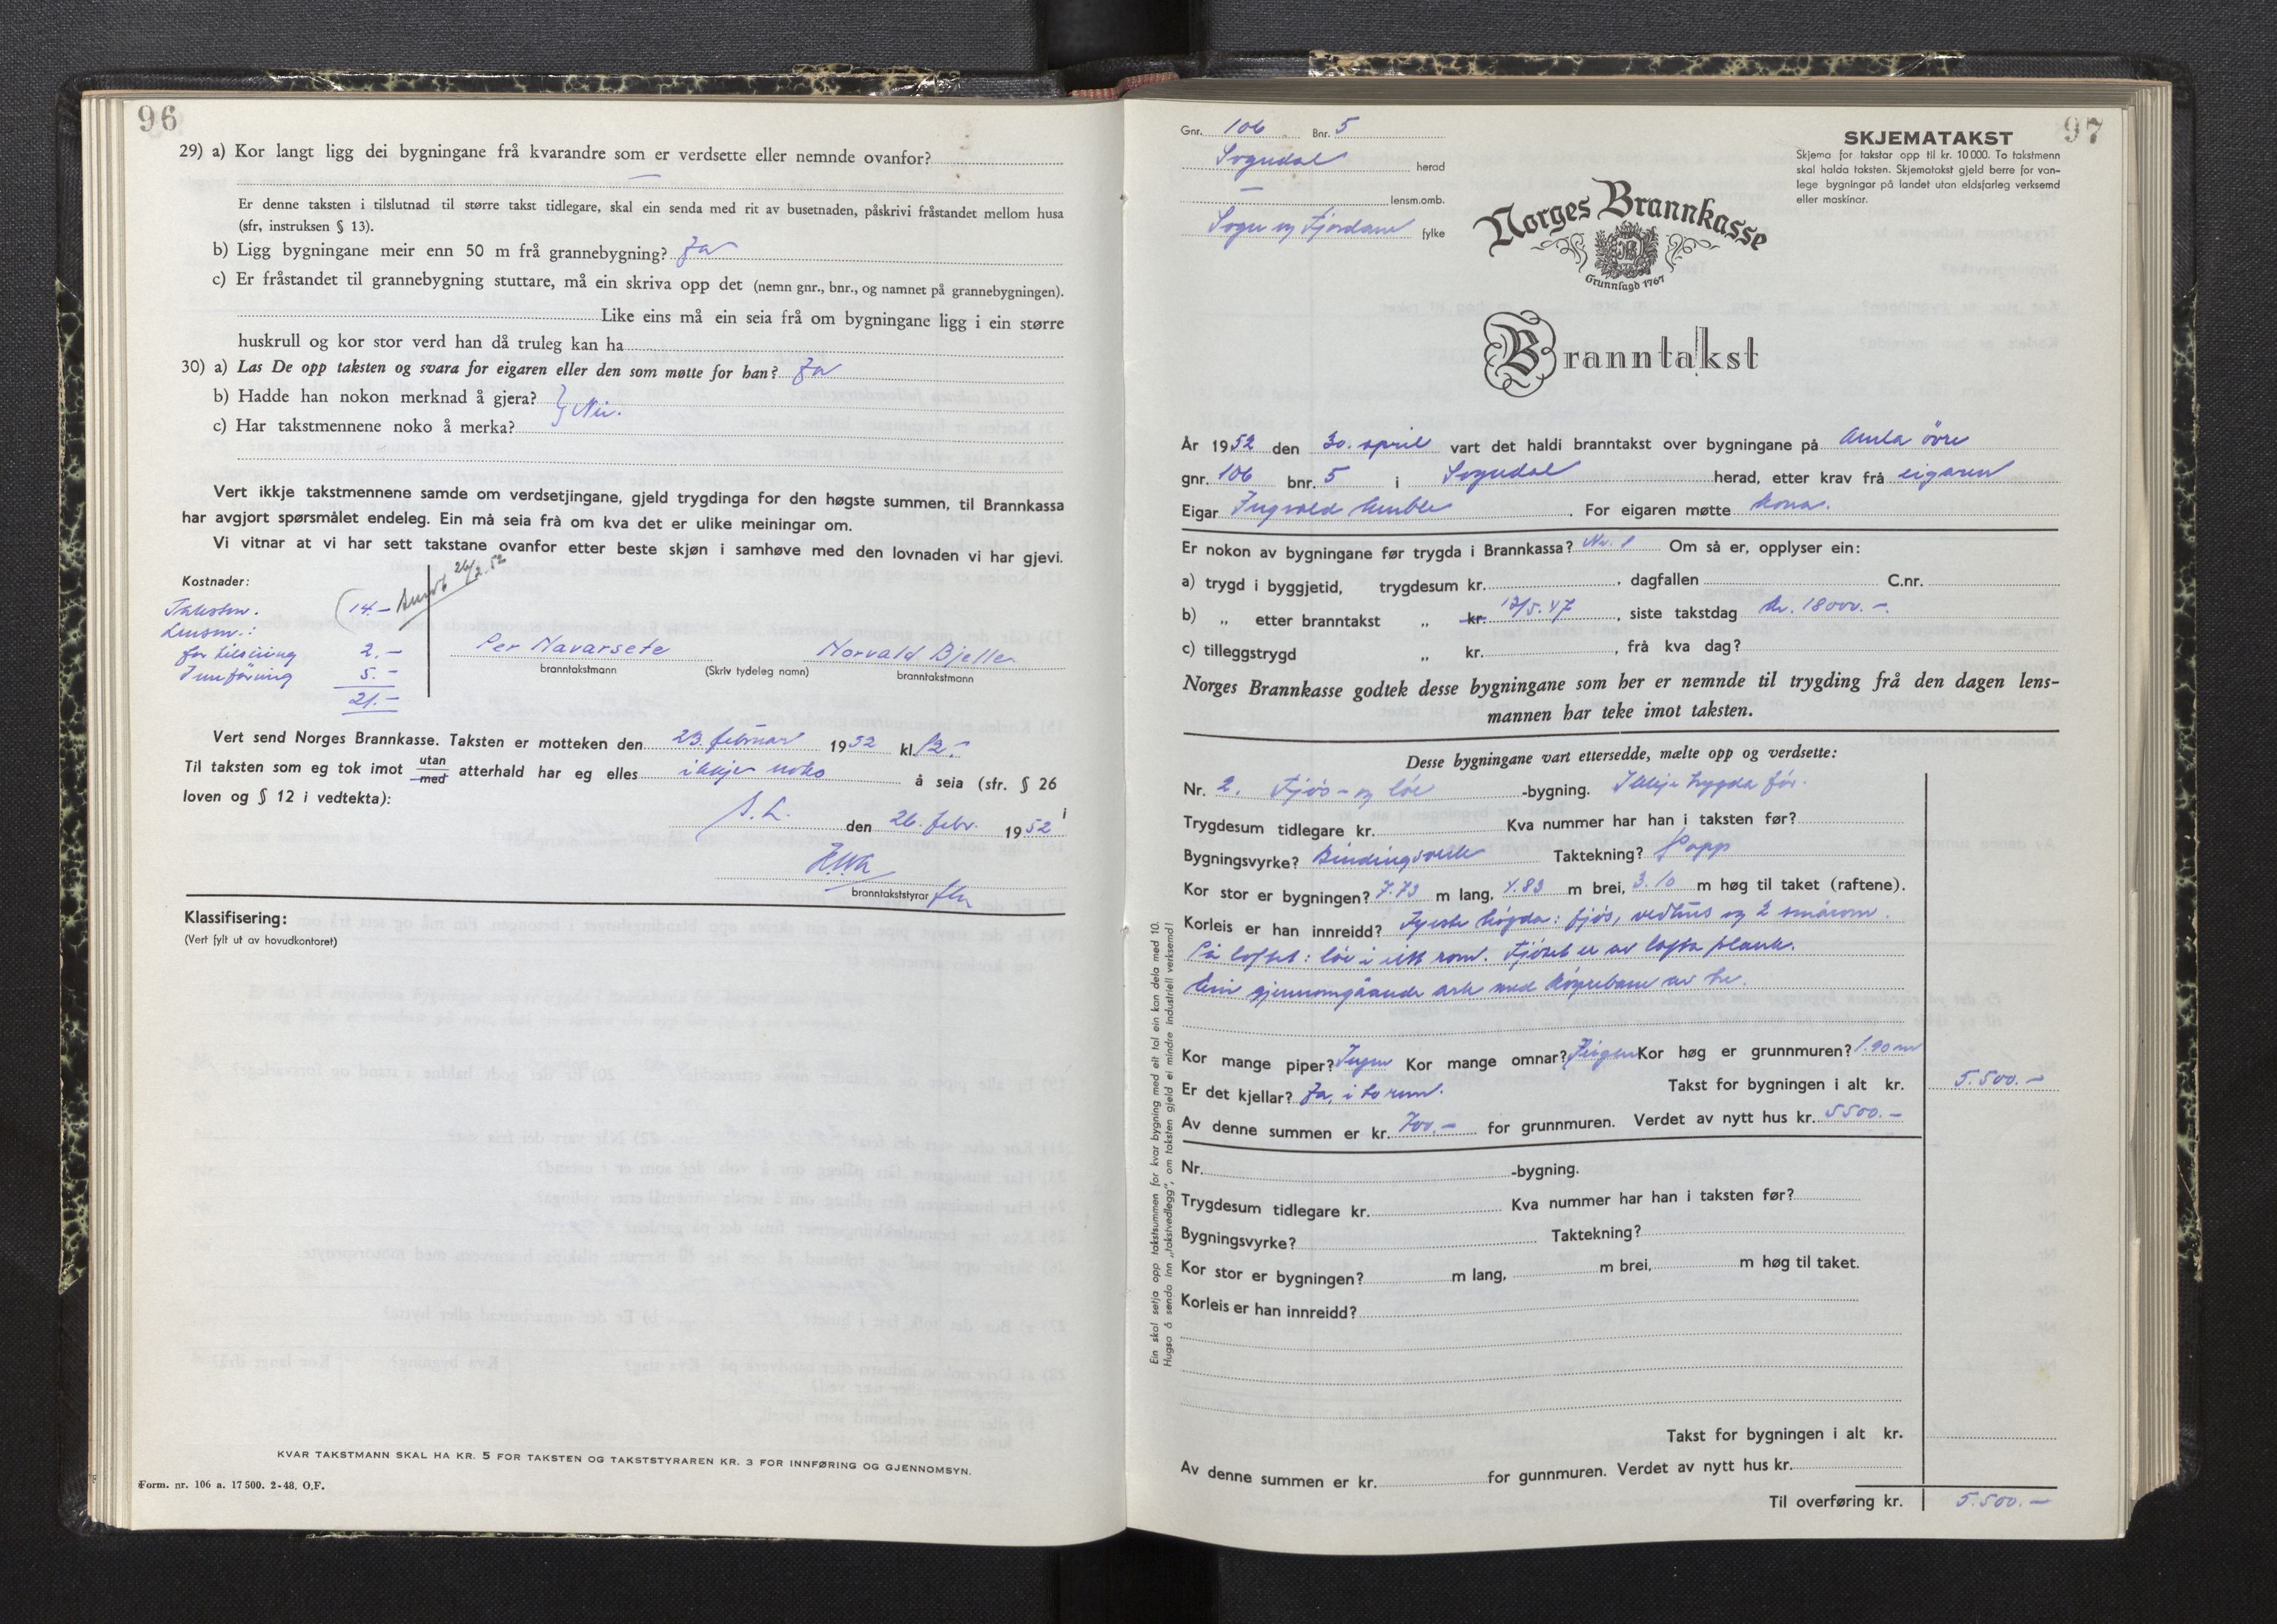 96
29) a) Kor langt ligg dei bygningane frå kvarandre som er verdsette eller nemnde ovanfor?
—
Er denne taksten i tilslutnad til større takst tidlegare, skal ein senda med rit av busetnaden, påskrivi fråstandet mellom husa
(sfr, instruksen § 13).
b) Ligg bygningane meir enn 50 m frå grannebygning? Ja
c) Er fråstandet til grannebygning stuttare, må ein skriva opp det (nemn gnr., bnr., og namnet på grannebygningen).
Like eins må ein seia frå om bygningane ligg i ein større
huskrull og kor stor verd han då truleg kan ha
30) a) Las De opp taksten og svara for eigaren eller den som møtte for han? Ja
b) Hadde han nokon merknad å gjera?
} Nei.
c) Har takstmennene noko å merka?
Vert ikkje takstmennene samde om verdsetjingane, gjeld trygdinga for den høgste summen, til Brannkassa
har avgjort spørsmålet endeleg. Ein må seia frå om kva det er ulike meiningar om.
Vi vitnar at vi har sett takstane ovanfor etter beste skjøn i samhøve med den lovnaden vi har gjevi.
Kostnader:
26/2.52
Takstm. 14.–
Lensm.:
for tilsining 2.–
Innføring 5.–
21.–
Per Navarsete Norvald Bjelle
branntakstmann (Skriv tydeleg namn) branntakstmann
Vert send Norges Brannkasse. Taksten er motteken den 23. februar 1952 kl. 12.–
Til taksten som eg tok imot utan/med atterhald har eg elles ikkje noko å seia (sfr. § 26 i
loven og § 12 i vedtekta):
S. L. den 26. febr. 1952
branntakststyrar
Klassifisering:
(Vert fylt ut av hovudkontoret)
KVAR TAKSTMANN SKAL HA KR. 5 FOR TAKSTEN OG TAKSTSTYRAREN KR. 3 FOR INNFØRING OG GJENNOMSYN.
Form. nr. 106 a. 17 500. 2-48. O.F.
97
Gnr. 106 Bnr. 5
Sogndal herad
— lensm.omb.
Sogn og Fjordane fylke
SKJEMATAKST
Skjema for takstar opp til kr. 10 000. To takstmenn
skal halda taksten. Skjematakst gjeld berre for van-
lege bygningar på landet utan eldsfarleg verksemd
eller maskinar.
Norges Brannkasse
Grunnlagd 1767
Branntakst
År 1952 den 30. april vart det haldi branntakst over bygningane på Amla øvre
gnr. 106 bnr. 5 i Sogndal herad, etter krav frå eigaren
Eigar Ingvald Amble. For eigaren møtte kona.
Er nokon av bygningane før trygda i Brannkassa? Nr. 1 Om så er, opplyser ein:
a) trygd i byggjetid, trygdesum kr. , dagfallen C.nr.
b) „ etter branntakst „ kr. 12/5.47, siste takstdag kr. 18000.–.
c) tilleggstrygd „ kr. , frå kva dag?
Norges Brannkasse godtek desse bygningane som her er nemnde til trygding frå den dagen lens-
mannen har teke imot taksten.
Desse bygningane vart ettersedde, mælte opp og verdsette:
Nr. 2. Fjøs- og løe -bygning. Ikkje trygda før.
Trygdesum tidlegare kr. Kva nummer har han i taksten før?
Bygningsvyrke? Bindingsverk Taktekning? Papp
Kor stor er bygningen? 7.73 m lang, 4.83 m brei, 3.10 m høg til taket (raftene).
Korleis er han innreidd? Fyrste høgda: fjøs, vedhus og 2 smårom.
På loftet: løe i eitt rom. Fjøset er av lafta plank.
Ein gjennomgåande ark med køyrebane av tre.
Kor mange piper? Ingen Kor mange omnar? Ingen Kor høg er grunnmuren? 1.90 m
Er det kjellar? Ja, i to rom. Takst for bygningen i alt kr. 5.500.–
Av denne summen er kr. 700.– for grunnmuren. Verdet av nytt hus kr. 5500.–
Nr. -bygning.
Trygdesum tidlegare kr. Kva nummer har han i taksten før?
Bygningsvyrke? Taktekning?
Kor stor er bygningen? m lang, m brei, m høg til taket.
Korleis er han innreidd?
Takst for bygningen i alt kr.
Av denne summen er kr. for gunnmuren. Verdet av nytt hus kr.
Til overføring kr. 5.500.–
Ein skal setja opp takstsummen for kvar bygning med eit tal ein kan dela med 10.
Hugsa å senda inn „takstvedlegg", om taksten gjeld ei mindre industriell verksemd!